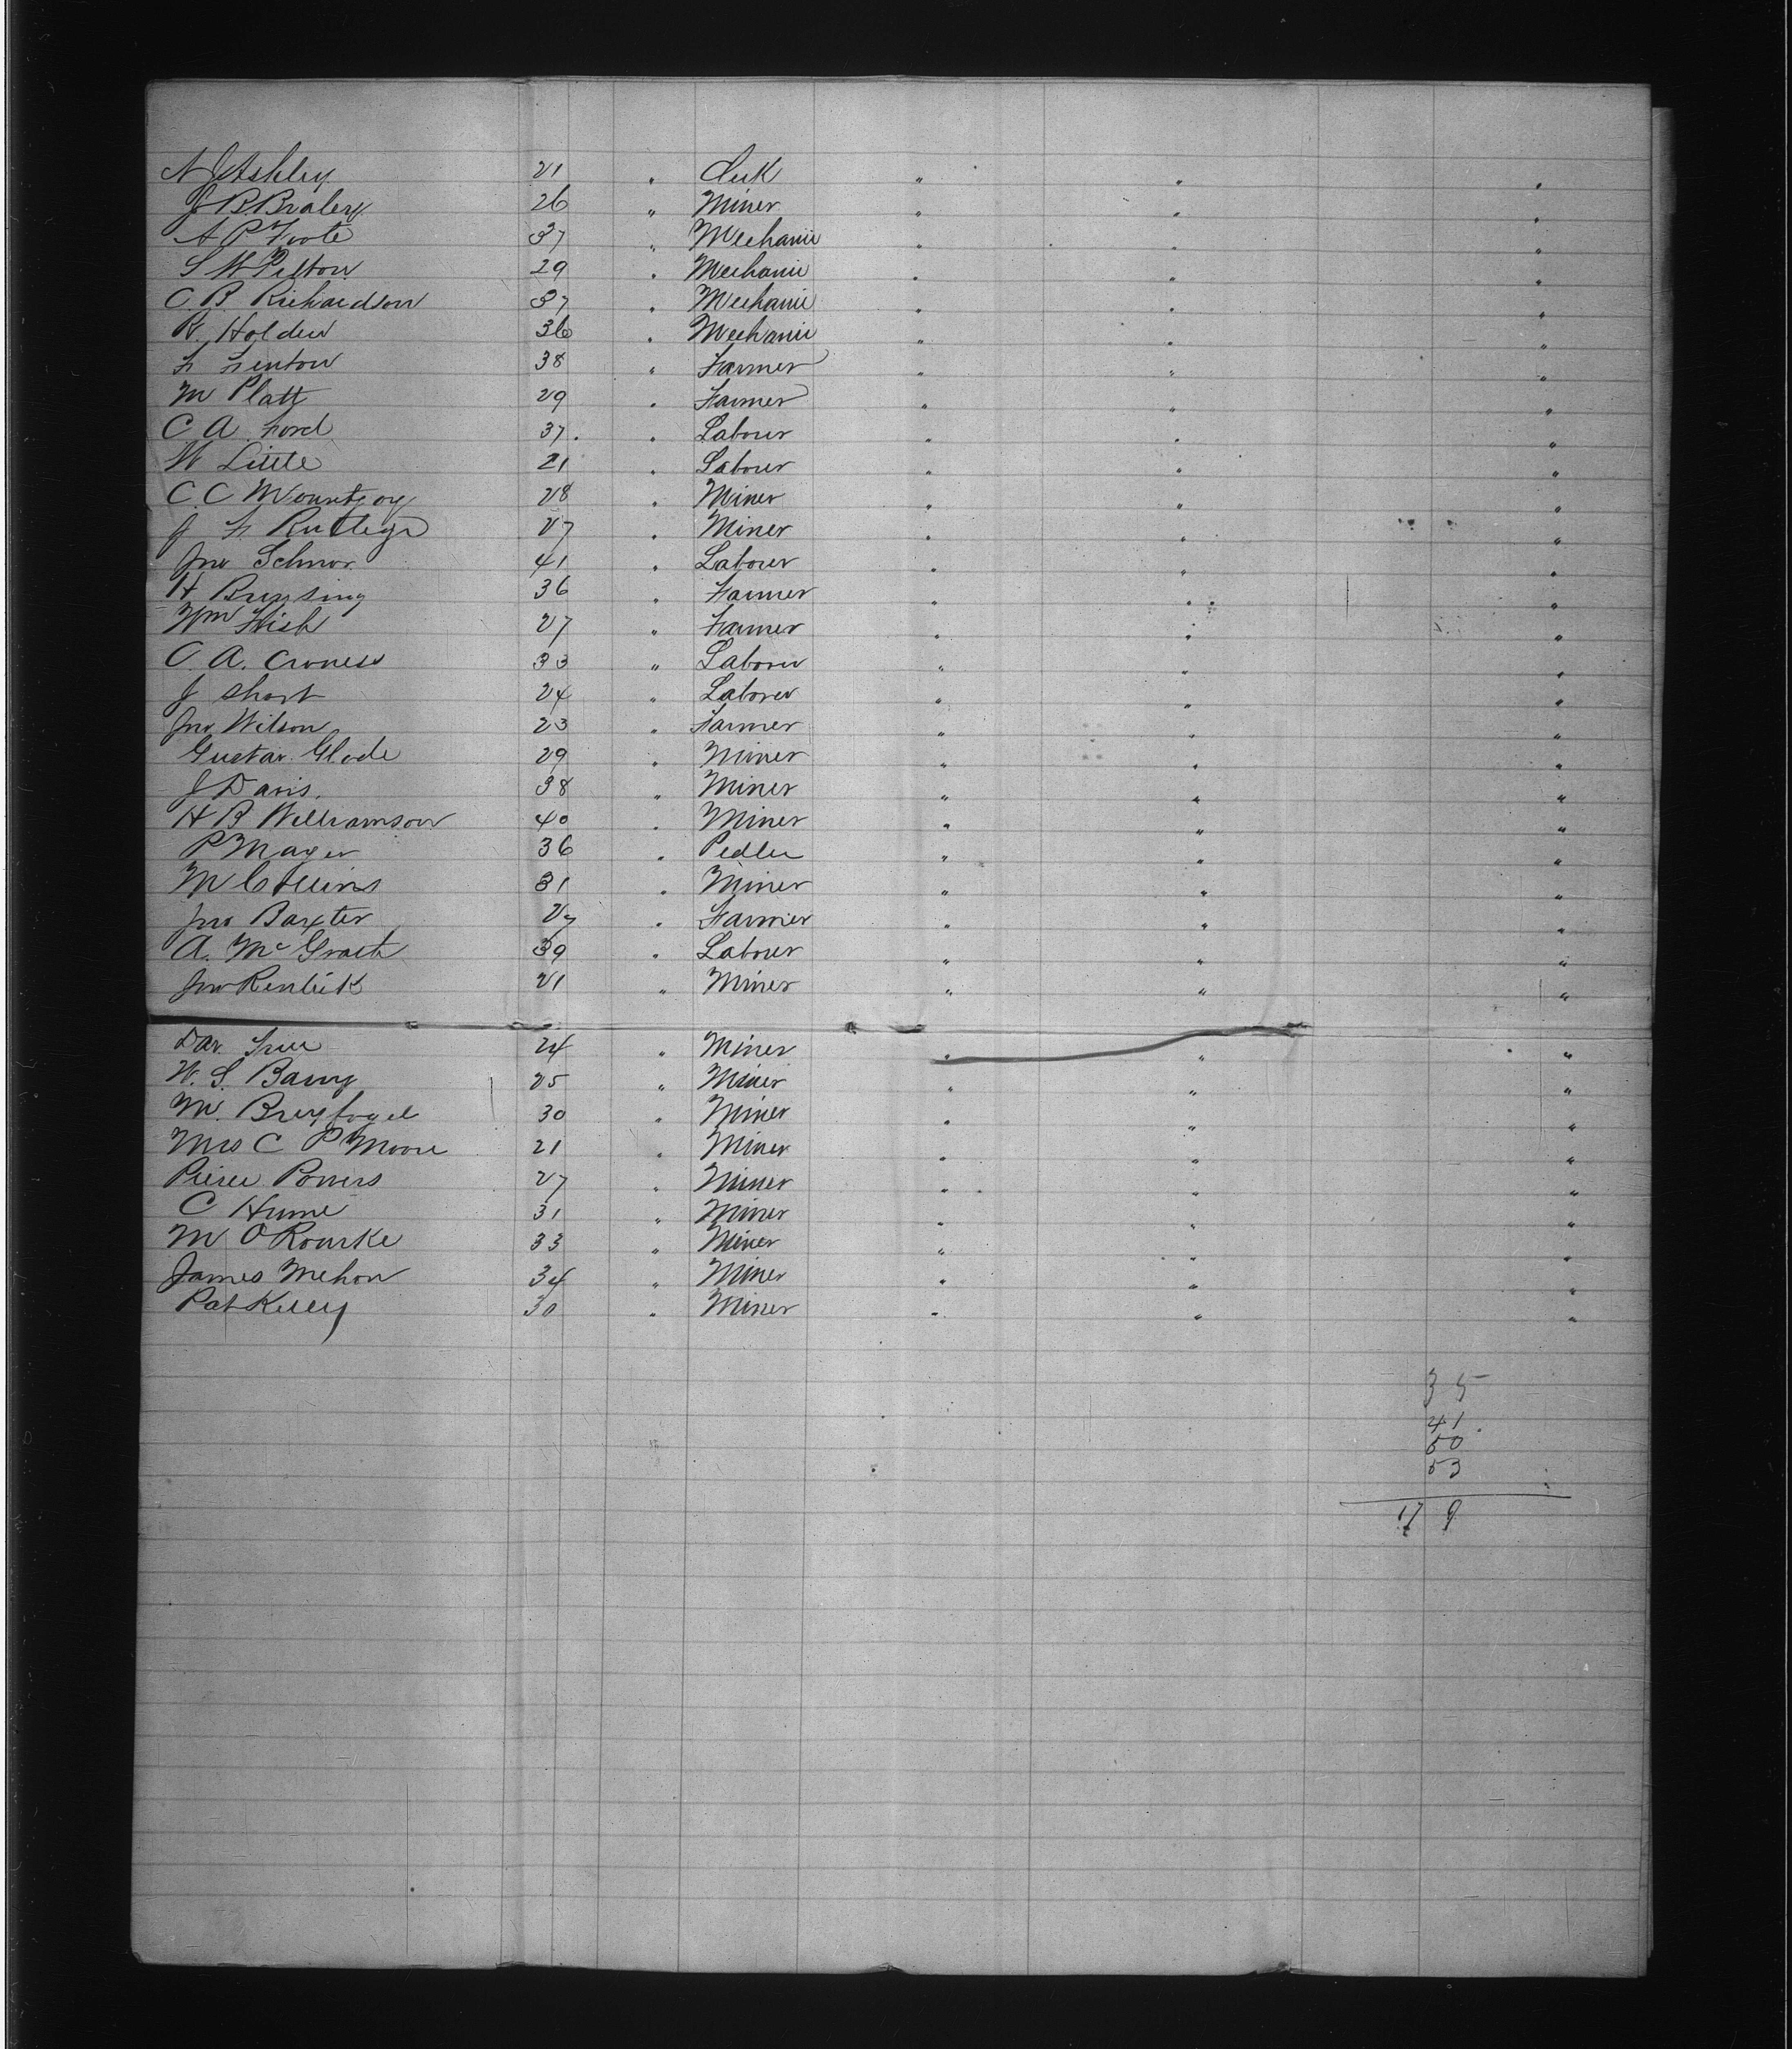 N J Ashley 21 " Clerk " " "
J B. Braley 26 " Miner " " "
A P Foote 37 " Mechanic " " "
S W Pelton 29 " Mechanic " " "
C. B. Richardson 37 " Mechanic " " "
R. Holden 36 " Mechanic " " "
F Fenton 38 " Farmer " " "
M Platt 29 " Farmer " " "
C A Ford 37. " Laborer " " "
W Little 21 " Laborer " " "
C. C 28 " Miner " " "
J F 27 " Miner " " "
Jno Schnor 41 " Laborer " " "
H 36 " Farmer " " "
Wm Fish 27 " Farmer " " "
C. A. Croness 33 " Laborer " " "
J Short 24 " Laborer " " "
Jno. Wilson 23 " Farmer " " "
Gustav Glode 29 " Miner " " "
J Davis. 38 " Miner " " "
H B Williamson 40 " Miner " " "
P Mayer 36 " Pedler " " "
M Collins 31 " Miner " " "
Jno Baxter 27 " Farmer " " "
A. McGrath 39 " Laborer " " "
Jno 21 " Miner " " "
Dav. 24 " Miner " " "
W. S. 25 " Miner " " "
M. Breyfogel 30 " Miner " " "
Mrs C P Moore 21 " Miner " " "
Pierce Powers 27 " Miner " " "
C Hume 31 " Miner " " "
M O Rourke 33 " Miner " " "
James Mehon 34 " Miner " " "
Pat Kelley 30 " Miner " " "
35
41
50
53
179